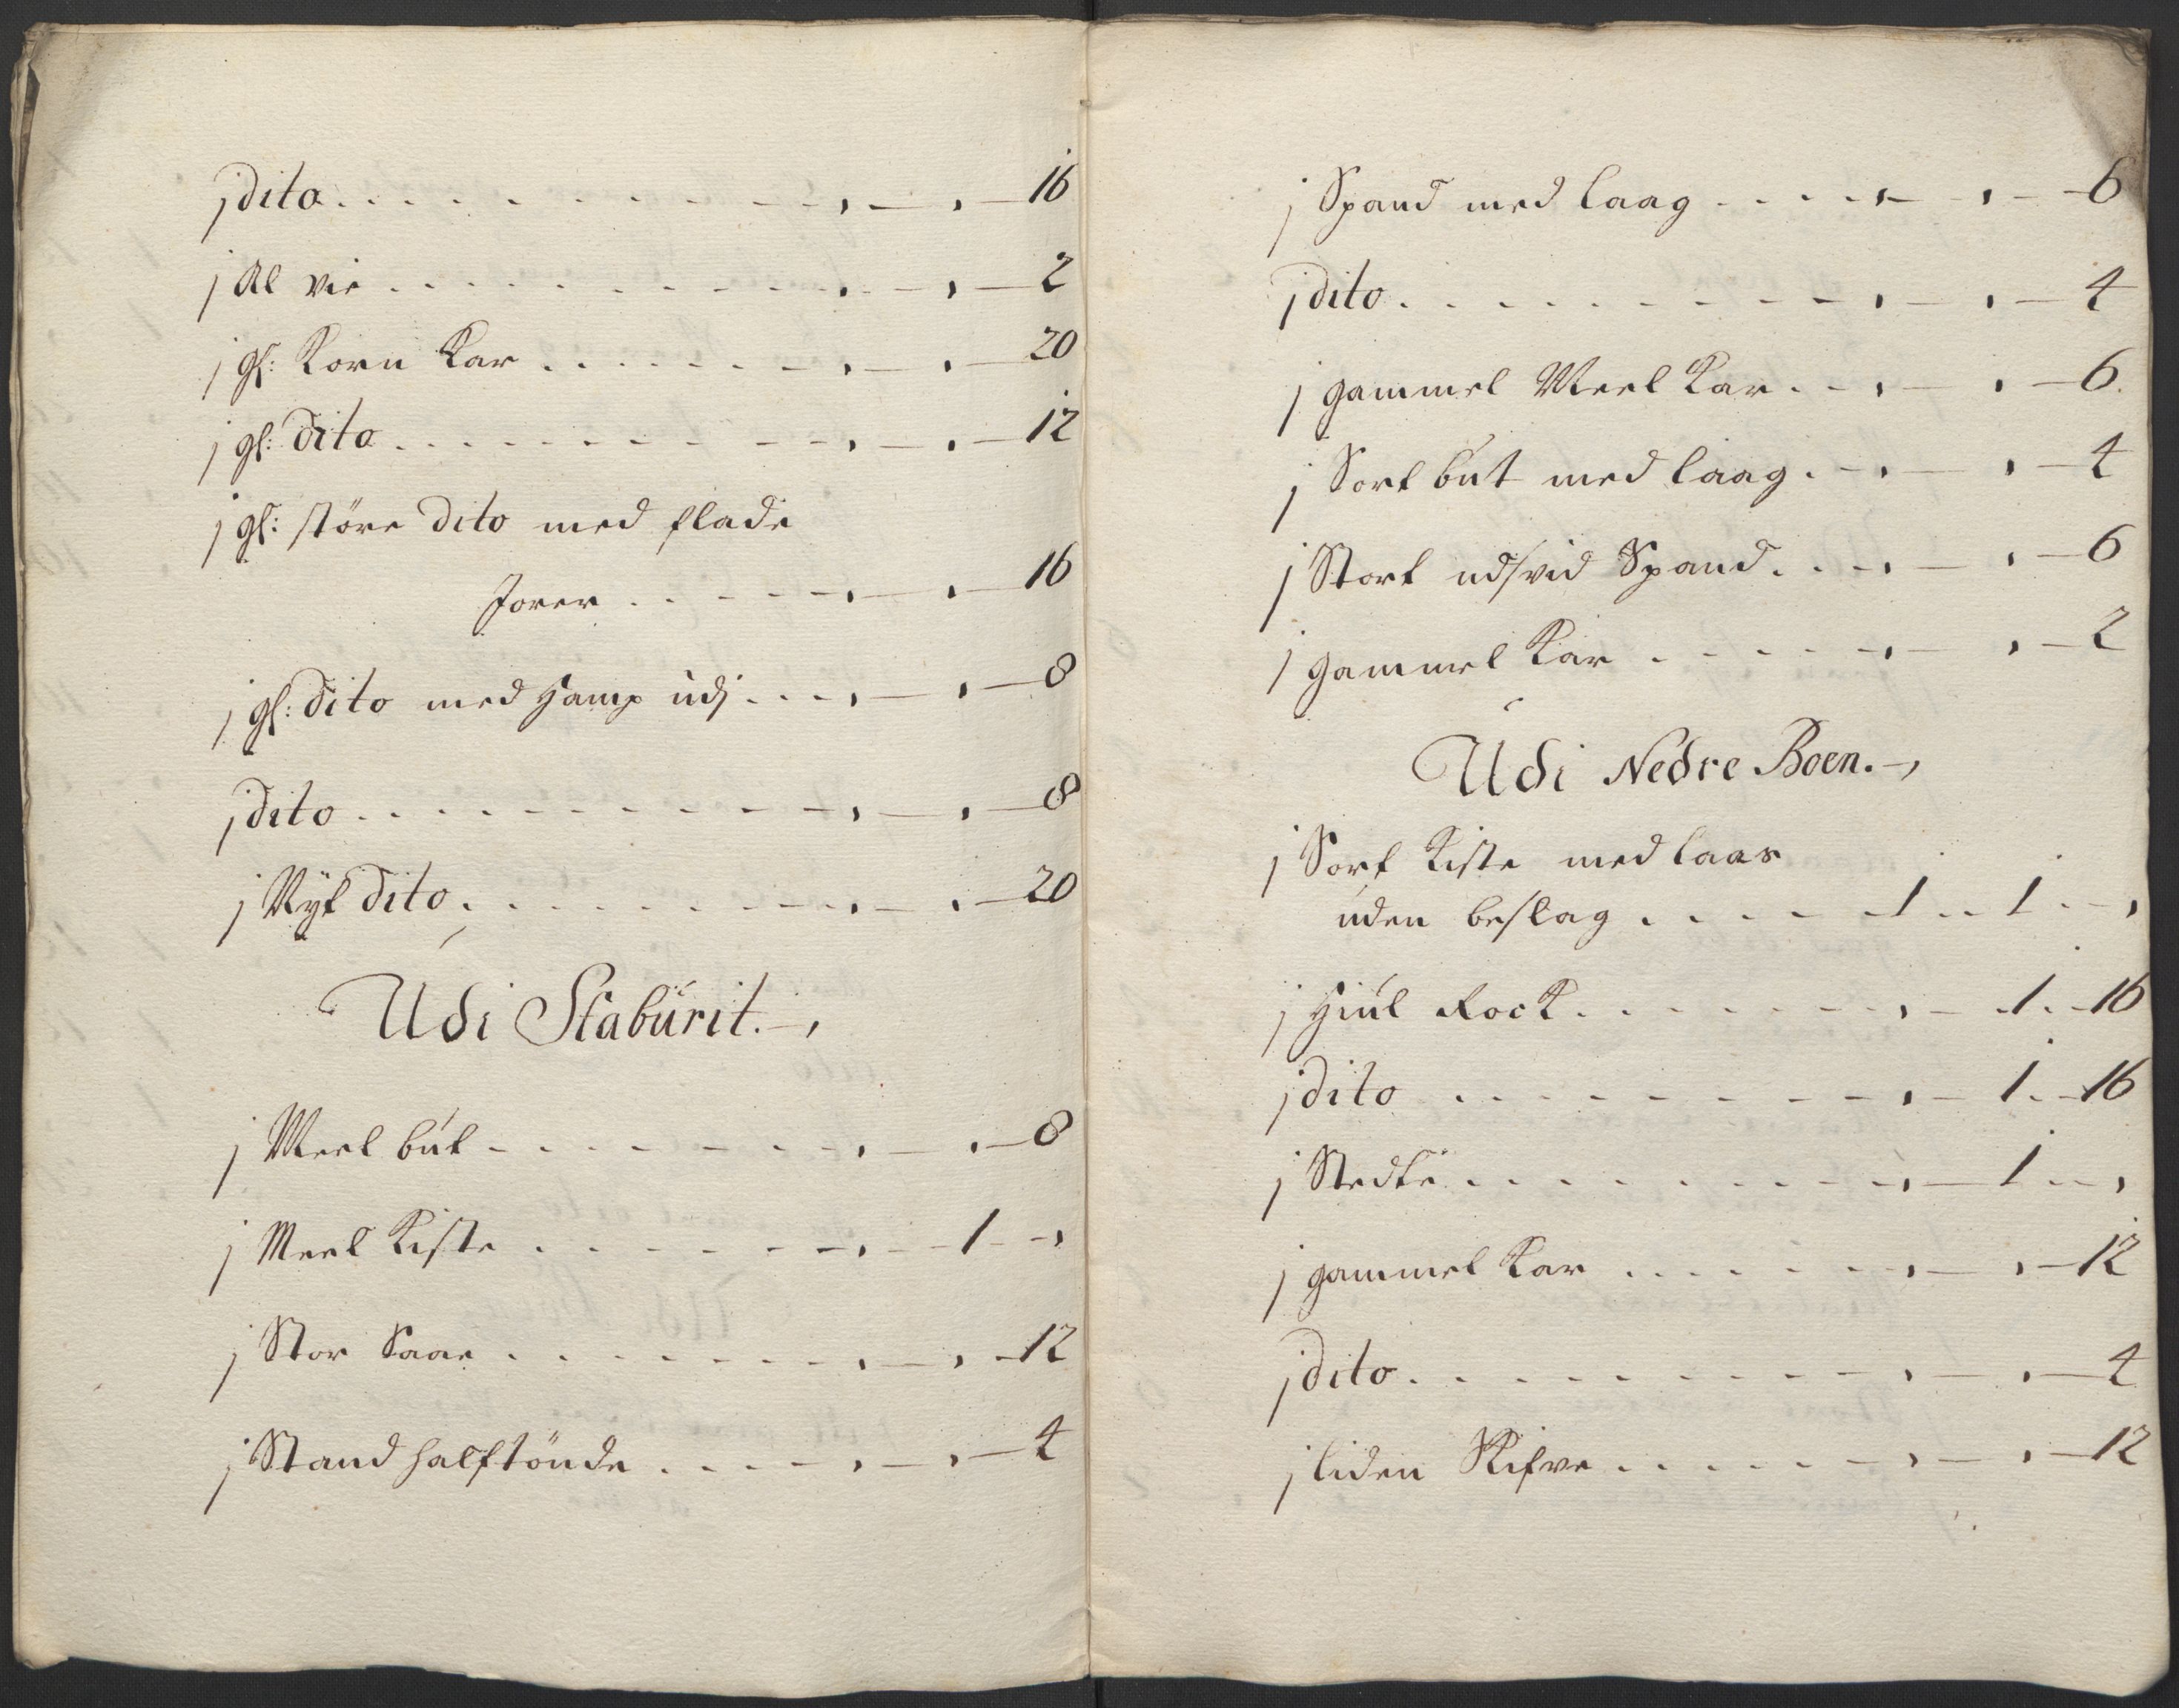 j dito . . . . . . . . . . , — , — 16
j Al vie . . . . . . . . . , — , — 2
j gl: Korn Kar . . . . . . . , — , — 20
j gl: dito . . . . . . . . . , — , — 12
j gl: störe dito med flade
Jorer . . . . . , — , — 16
j gl: dito med Hamp udj . . . , — , — 8
j dito . . . . . . . . . . , — , — 8
j Nyt dito . . . . . . . . . , — , — 20
Udi Staburit. —,
j Meel but . . . . . . . . , — , — 8
j Meel Kiste . . . . . . . , — 1 — ,
j Stor Saae . . . . . . . . , — , — 12
j Stand halftönde . . . . , — , — 4
j Spand med laag . . . . , — , — 6
j dito . . . . . . . . . . , — , — 4
j gammel Meel Kar . . , — , — 6
j Sort but med laag . . , — , — 4
j Stort udsvid Spand . . . , — , — 6
j gammel Kar . . . . . , — , — 2
Udi Nedre Boen. —,
j Sort Kiste med laas
uden beslag . . . . 1 . . 1 . — ,
j Hiul Rock . . . . . . . , — 1 . — 16
j dito . . . . . . . . . , — 1 . — 16
j Stedte . . . . . . . . . , — 1 . . — ,
j gammel Kar . . . . . . , — , — 12
j dito . . . . . . . . . . , — , — 4
j liden Skifve . . . . . . , — , — 12